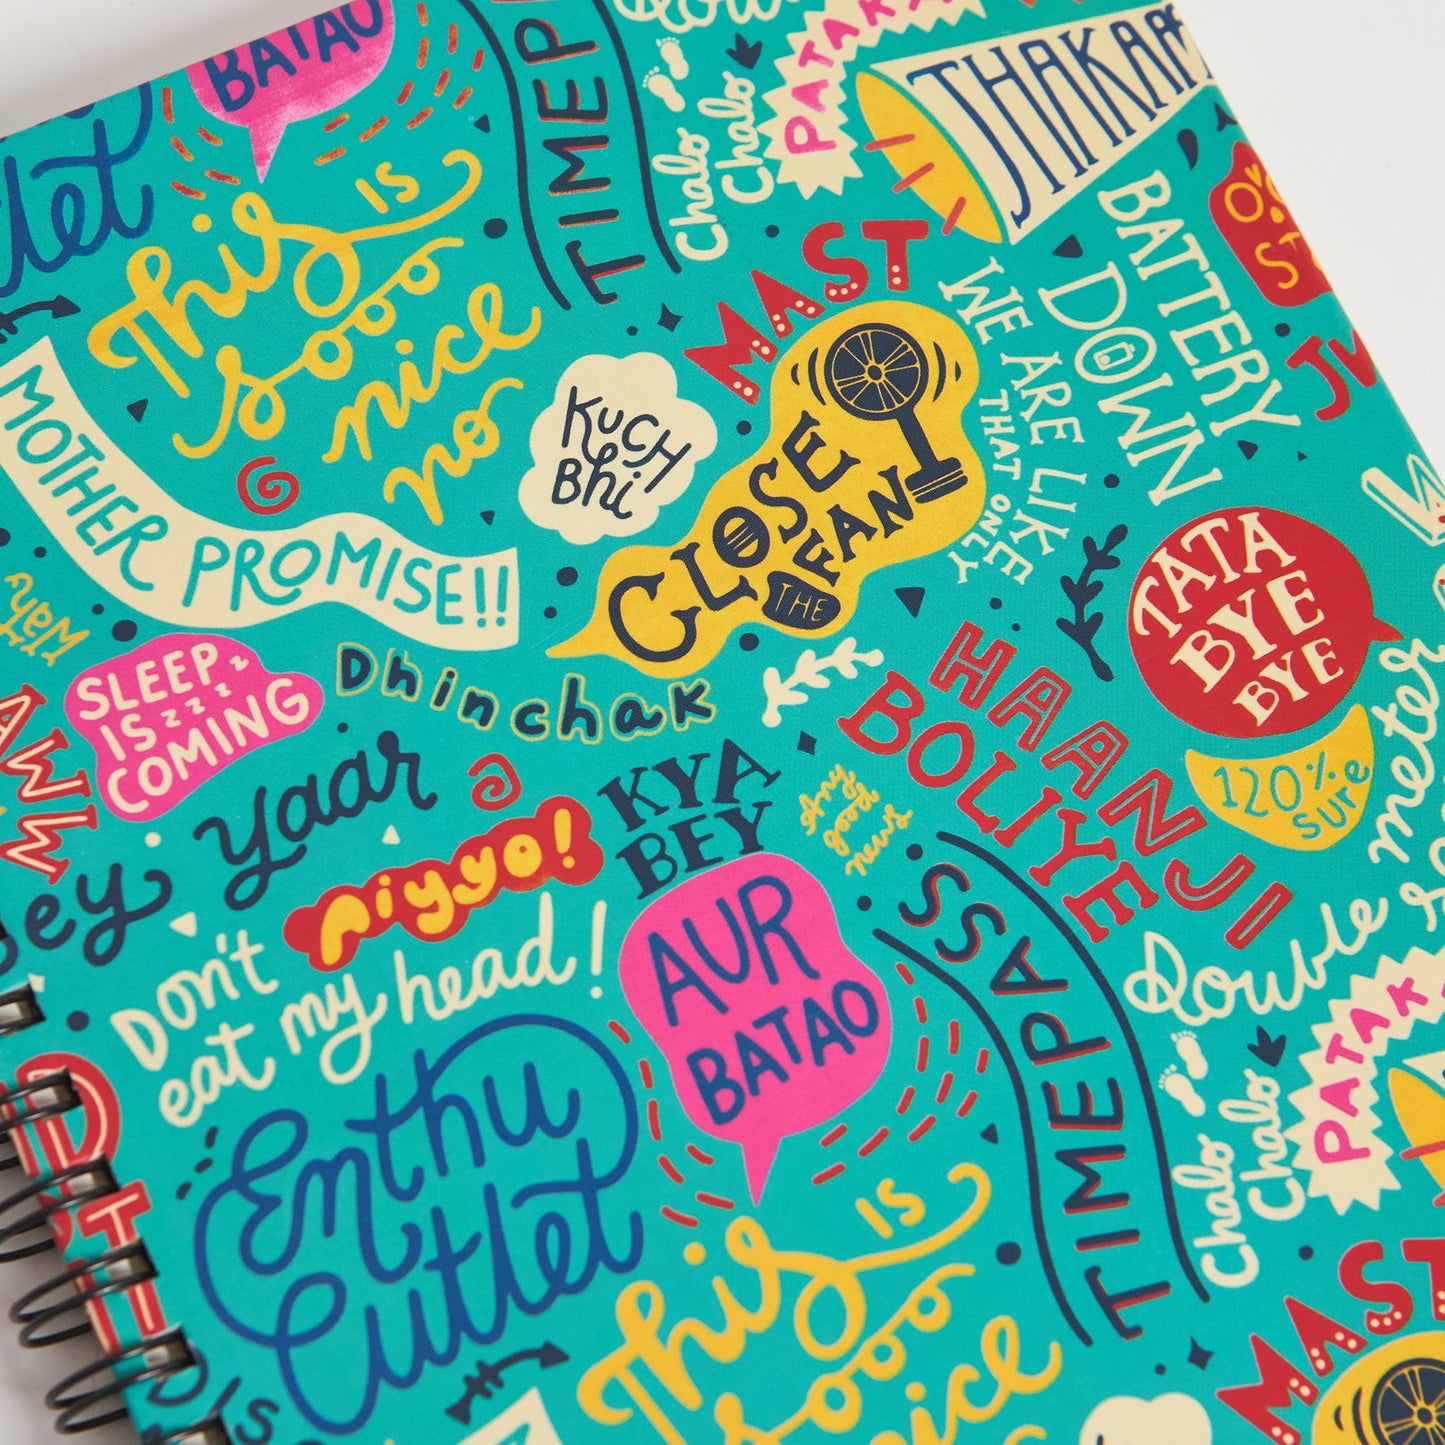 BATAO
TIMEP
Chalo
Chalo
PATAKA
THAKAAN
This is
sooo
nice
no
MAST
BATTERY
DOWN
WE ARE LIKE
THAT ONLY
MOTHER PROMISE!!
KUCH
Bhi
CLOSE
THE
FAN
TATA
BYE
BYE
120%
sure
SLEEP
IS zzz
COMING
Dhinchak
HAANJI
BOLIYE
yaar
Aiyyo!
KYA
BEY
Any
good
news
Don't
eat my head!
AUR
BATAO
TIMEPASS
Double meter
Enthu
Cutlet
Chalo
Chalo
PATAK
This is
sooo
nice
MAST